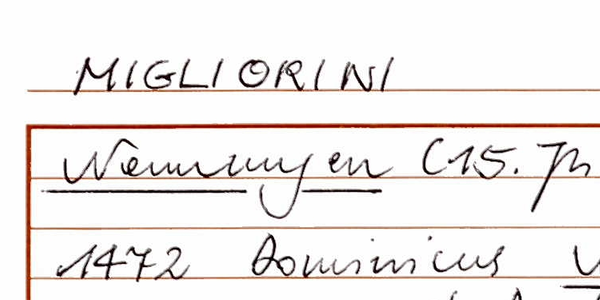 MIGLIORINI
Nennungen (15. Jh
1472 Dominicus